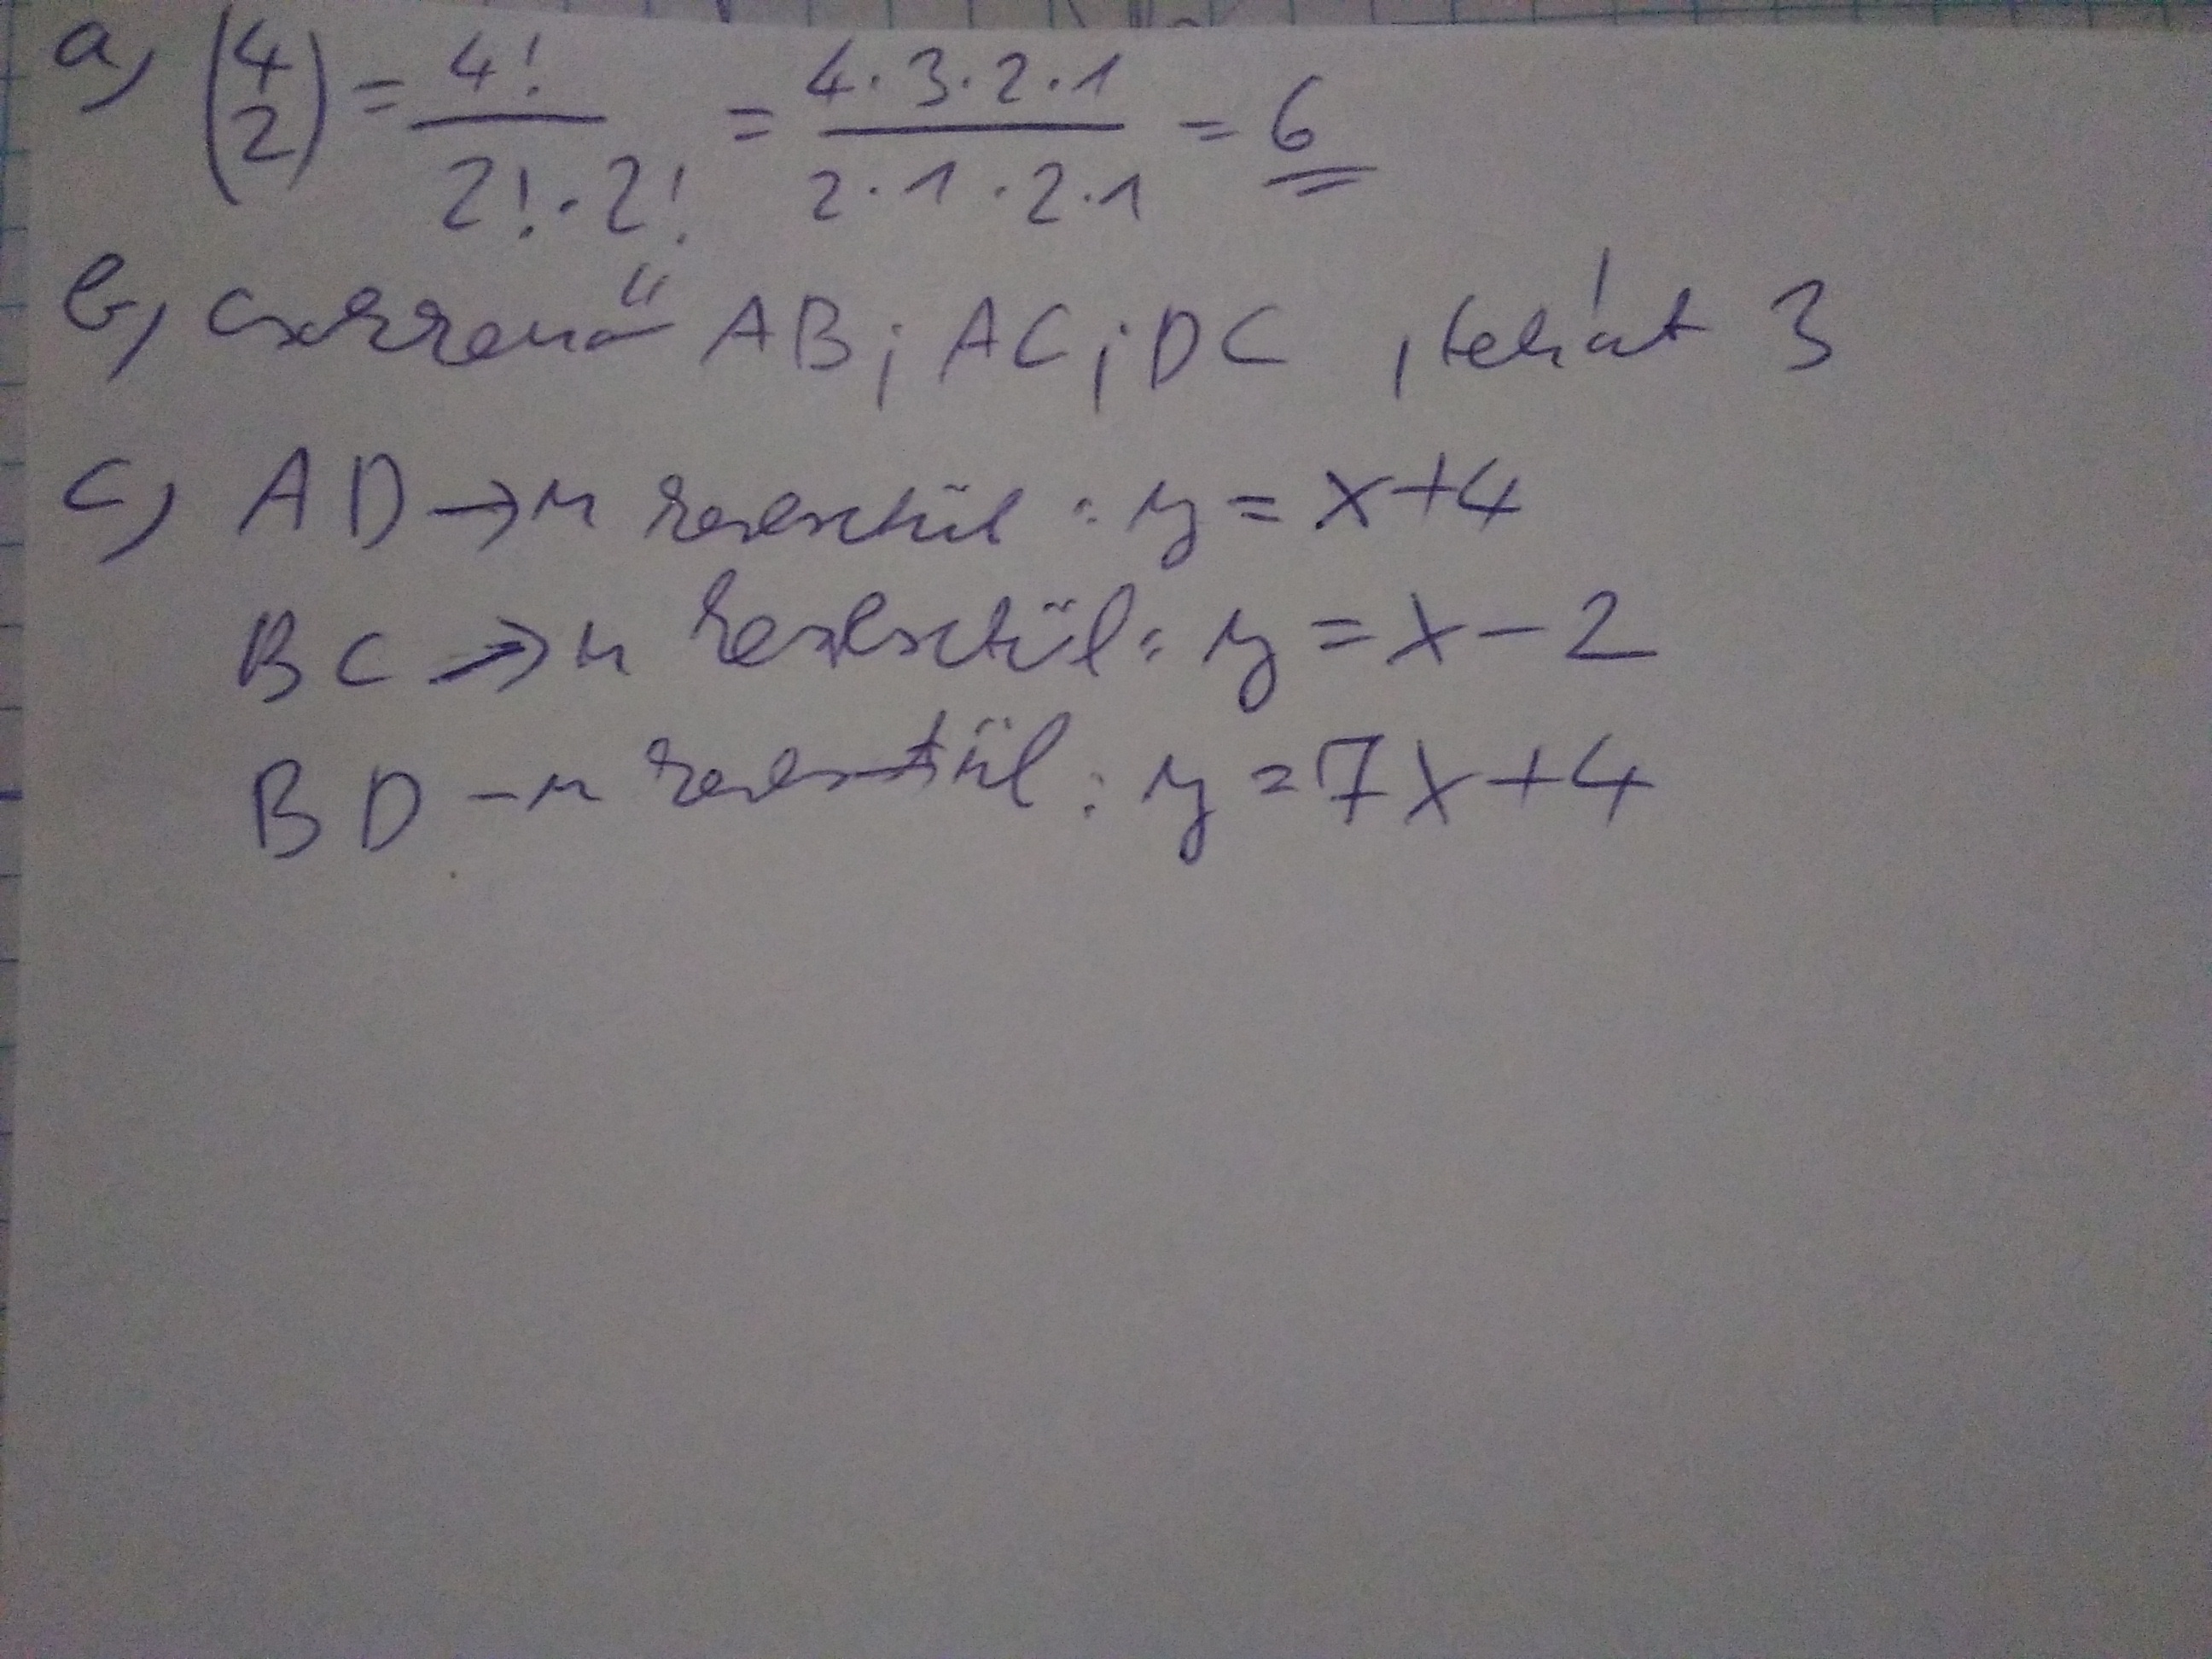 a, (4 2) = 4! / 2!·2! = 4·3·2·1 / 2·1·2·1 = 6
b, csökkenő AB; AC; DC, tehát 3
c, AD → n keresztül: y = x+4
BC → n keresztül: y = x-2
BD -n keresztül: y = 7x+4